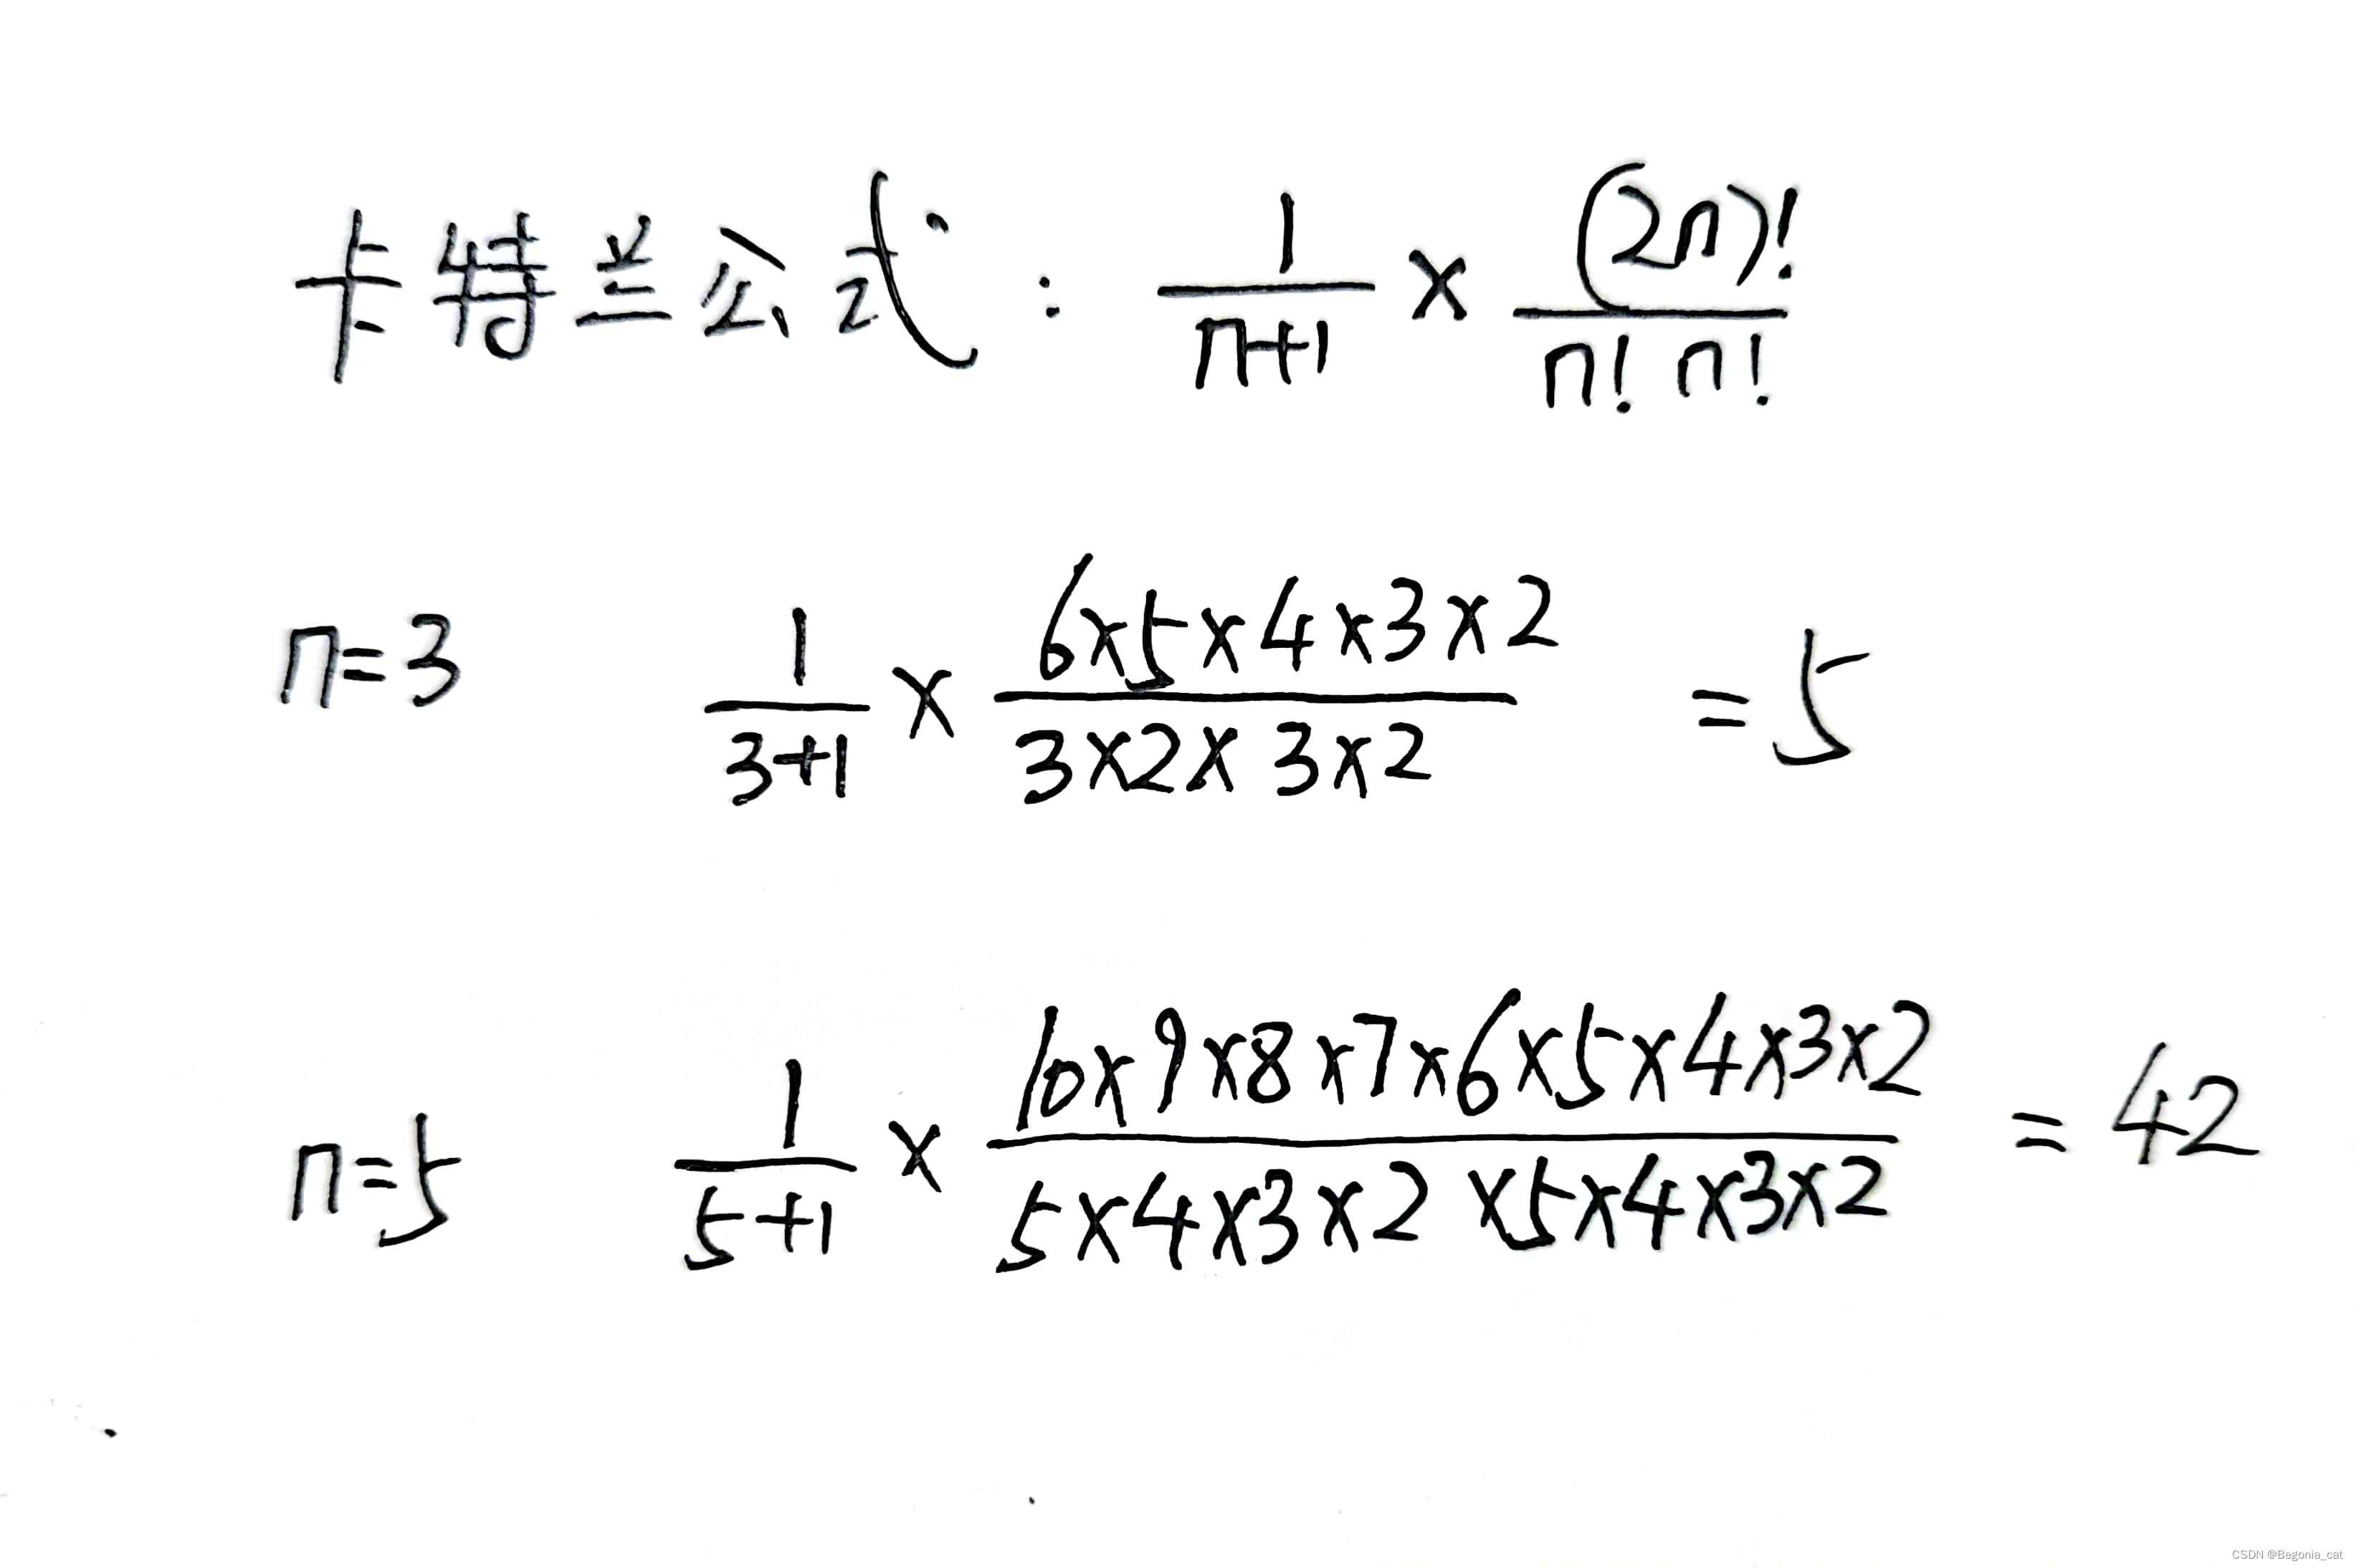 卡特兰公式: 1/(n+1) × (2n)!/(n! n!)
n=3 1/(3+1) × (6×5×4×3×2)/(3×2×3×2) = 5
n=5 1/(5+1) × (10×9×8×7×6×5×4×3×2)/(5×4×3×2×5×4×3×2) = 42
CSDN @Begonia_cat